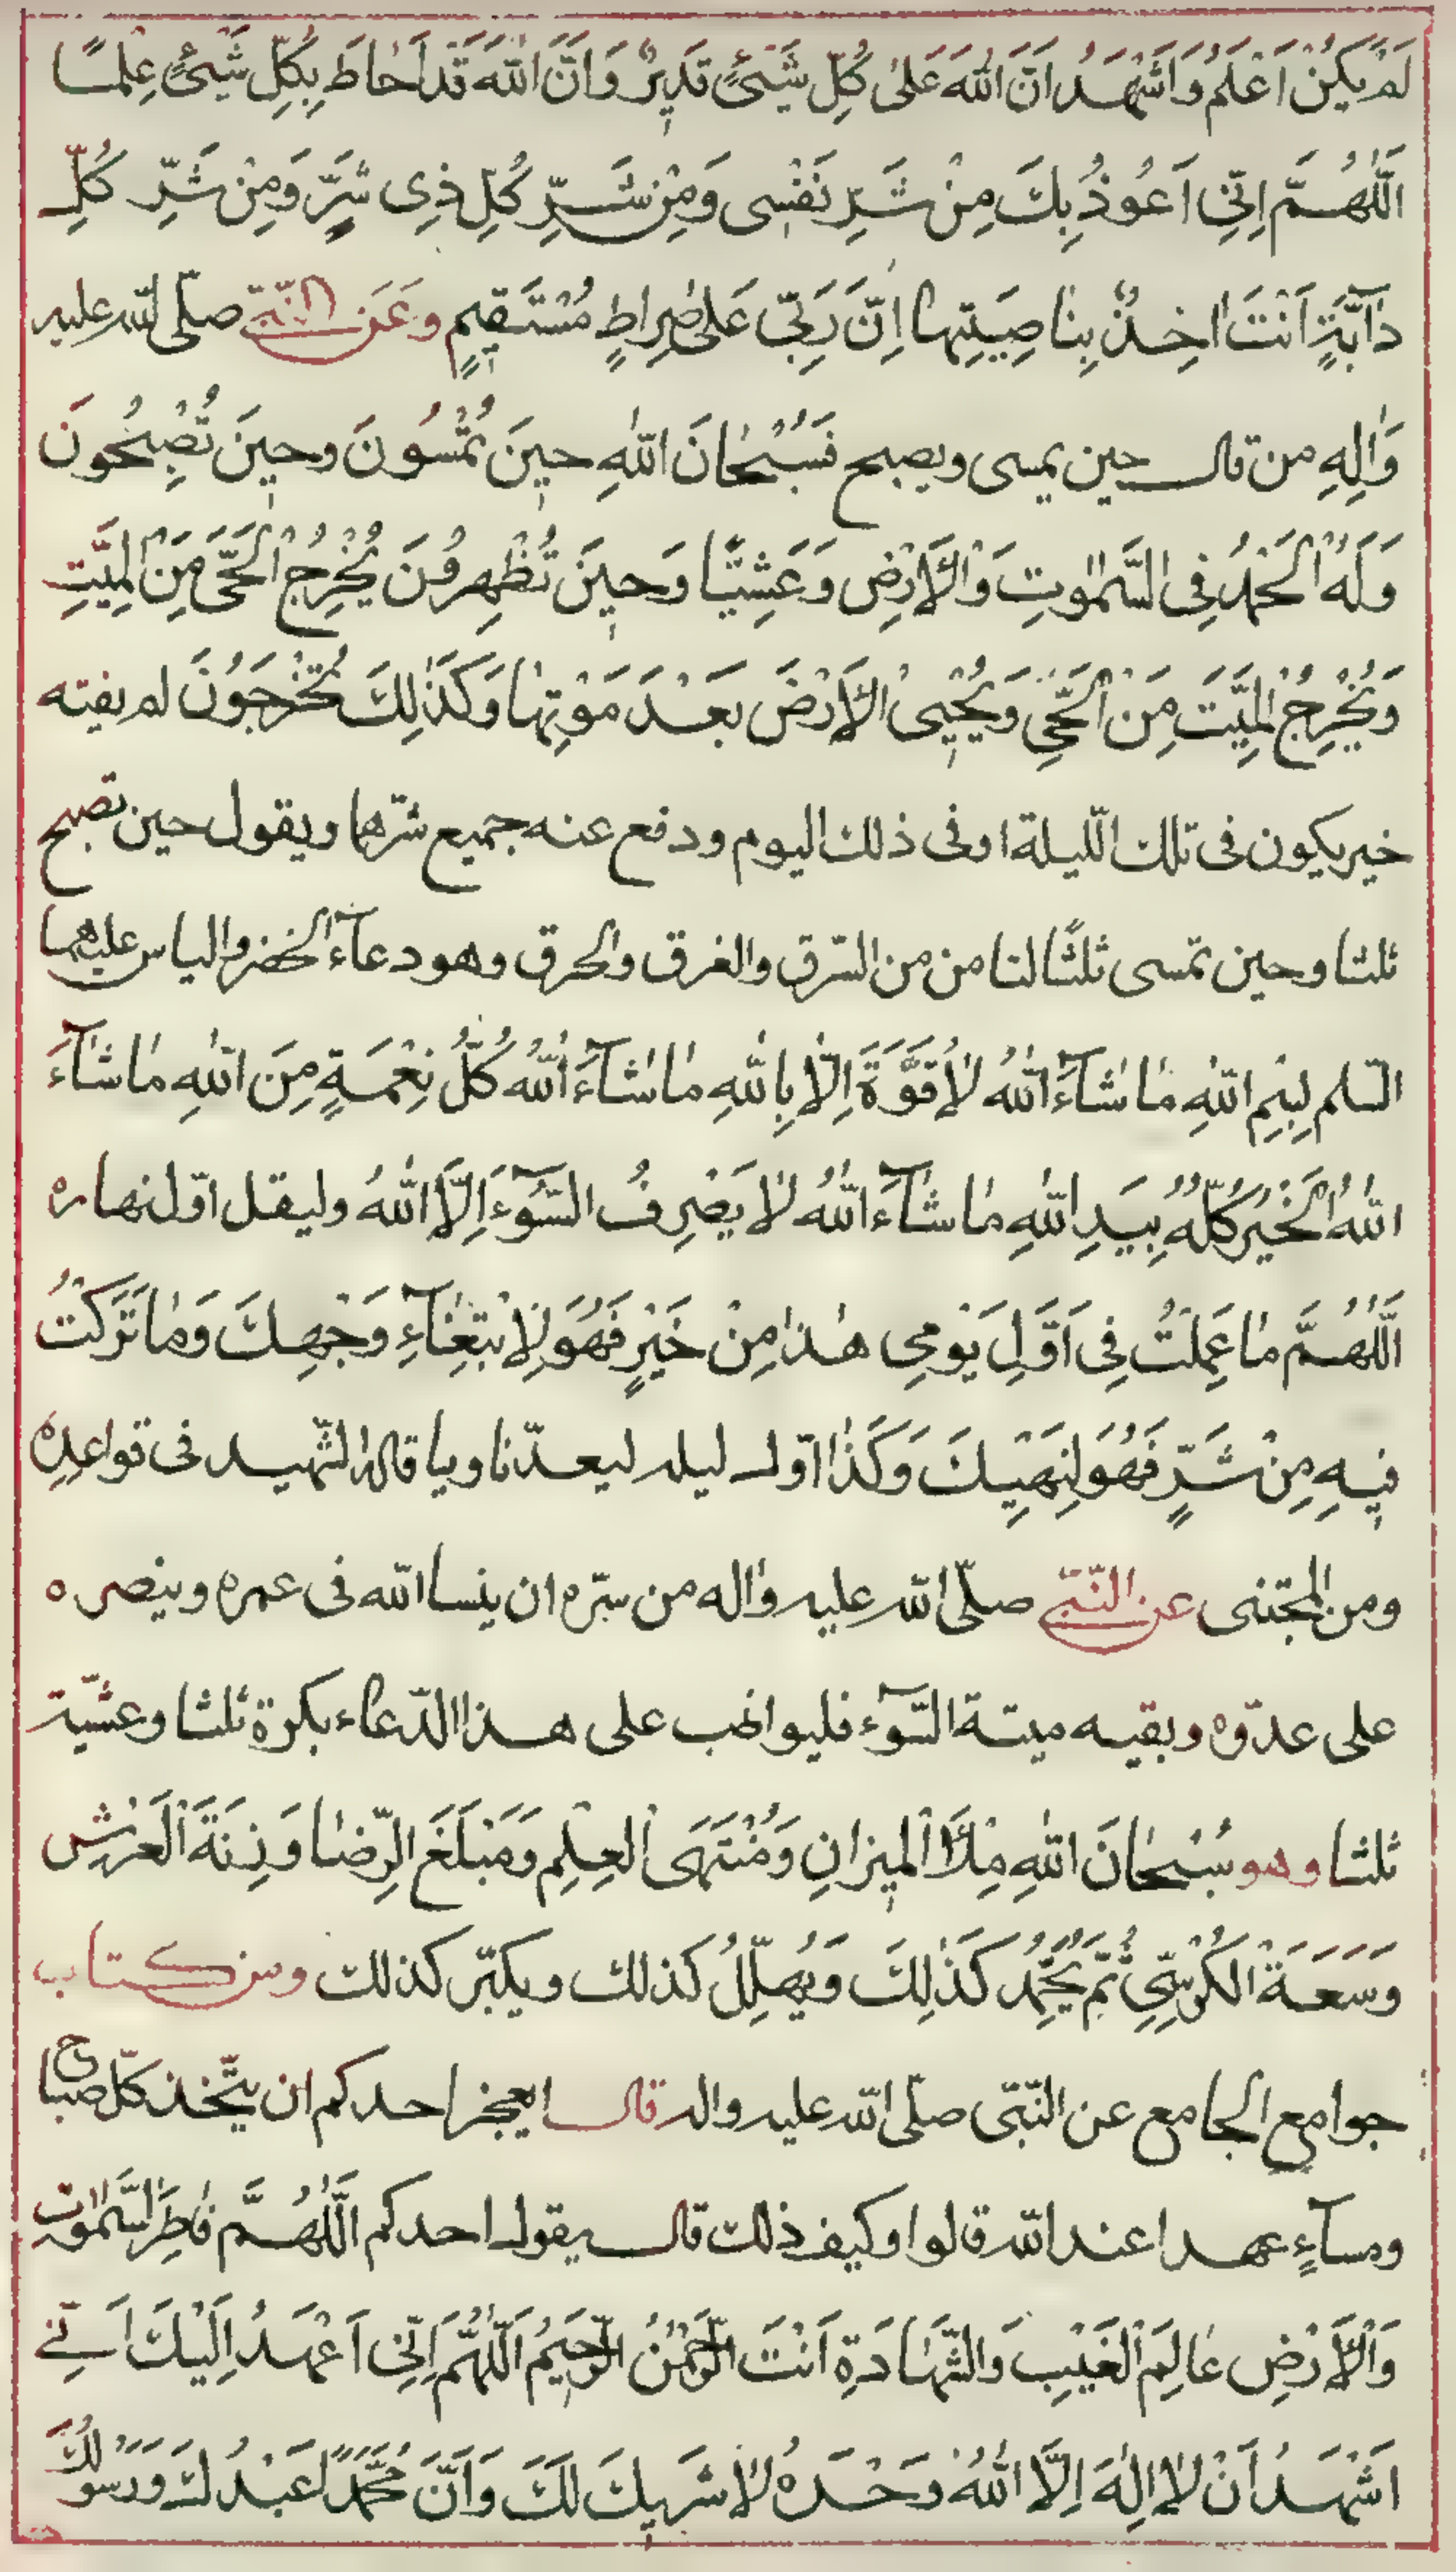 لَمْ يَكُنْ اَعْلَمُ وَاَشْهَدُ اَنَّ اللّٰهَ عَلىٰ كُلِّ شَيْئٍ قَدِيرٌ وَاَنَّ اللّٰهَ قَدْ اَحٰاطَ بِكُلِّ شَيْئٍ عِلْمًا
اَللّٰهُمَّ اِنّي اَعُوذُ بِكَ مِنْ شَرِّ نَفْسى وَمِنْ شَرِّ كُلِّ ذِى شَرٍّ وَمِنْ شَرِّ كُلِّ
دٰآبَّةٍ اَنْتَ اٰخِذٌ بِنٰاصِيَتِهٰا اِنَّ رَبّى عَلىٰ صِرٰاطٍ مُسْتَقيمٍ وَعَنِ النَّبىّ صلّى اللّه عليه
وَاٰلِهِ من قال حين يمسى ويصبح فَسُبْحٰانَ اللّٰهِ حينَ تُمْسُونَ وَحينَ تُصْبِحُونَ
وَلَهُ الْحَمْدُ فِى السَّمٰوٰتِ وَالْاَرْضِ وَعَشِيًّا وَحينَ تُظْهِرُونَ يُخْرِجُ الْحَىَّ مِنَ الْمَيِّتِ
وَيُخْرِجُ الْمَيِّتَ مِنَ الْحَىِّ وَيُحْيِى الْاَرْضَ بَعْدَ مَوْتِهٰا وَكَذٰلِكَ تُخْرَجُونَ لم يفته
خير يكون فى تلك اللّيلة اوفى ذلك اليوم ودفع عنه جميع شرّها ويقول حين تصبح
ثلثا وحين تمسى ثلثًا لنا من من السّرق والغرق والحرق وهو دعآء الخضر والياس عليهما
السّلم بِسْمِ اللّٰهِ مٰا شٰآءَ اللّٰهُ لٰا قُوَّةَ اِلّٰا بِاللّٰهِ مٰا شٰآءَ اللّٰهُ كُلُّ نِعْمَةٍ مِنَ اللّٰهِ مٰا شٰآءَ
اللّٰهُ الْخَيْرُ كُلُّهُ بِيَدِ اللّٰهِ مٰا شٰآءَ اللّٰهُ لٰا يَصْرِفُ السُّوٓءَ اِلَّا اللّٰهُ وليقل اوّل نهاره
اَللّٰهُمَّ مٰا عَمِلْتُ فِى اَوَّلِ يَوْمِى هٰذٰا مِنْ خَيْرٍ فَهُوَ لِابْتِغٰآءِ وَجْهِكَ وَمٰا تَرَكْتُ
فيهِ مِنْ شَرٍّ فَهُوَ لِنَهْيِكَ وَكَذٰا اوّل ليله ليعدّ ناويا قاله الشّهيد فى قواعده
ومن المجتنى عن النّبىّ صلّى اللّه عليه واٰله من سرّه ان ينسا اللّه فى عمره وينصره
على عدوّه ويقيه ميتة السّوٓء فليواظب على هذا الدّعاء بكرة ثلثا وعشيّة
ثلثا وهو سُبْحٰانَ اللّٰهِ مِلْأَ الْميزٰانِ وَمُنْتَهَى الْعِلْمِ وَمَبْلَغَ الرِّضٰا وَزِنَةَ الْعَرْشِ
وَسَعَةَ الْكُرْسِىِّ ثُمَّ يُحَمِّدُ كَذٰلِكَ وَيُهَلِّلُ كذلك ويكبّر كذلك ومن كتاب
جوامع الجامع عن النّبىّ صلّى اللّه عليه واله قال ايعجز احدكم ان يتّخذ كلّ صباح
ومسآءٍ عهدا عند اللّه قالوا وكيف ذلك قال يقول احدكم اَللّٰهُمَّ فٰاطِرَ السَّمٰوٰاتِ
وَالْاَرْضِ عٰالِمَ الْغَيْبِ وَالشَّهٰادَةِ اَنْتَ الرَّحْمٰنُ الرَّحيمُ اَللّٰهُمَّ اِنّى اَعْهَدُ اِلَيْكَ اَنّى
اَشْهَدُ اَنْ لٰا اِلٰهَ اِلَّا اللّٰهُ وَحْدَهُ لٰا شَريكَ لَكَ وَاَنَّ مُحَمَّدًا عَبْدُكَ وَرَسُولُكَ